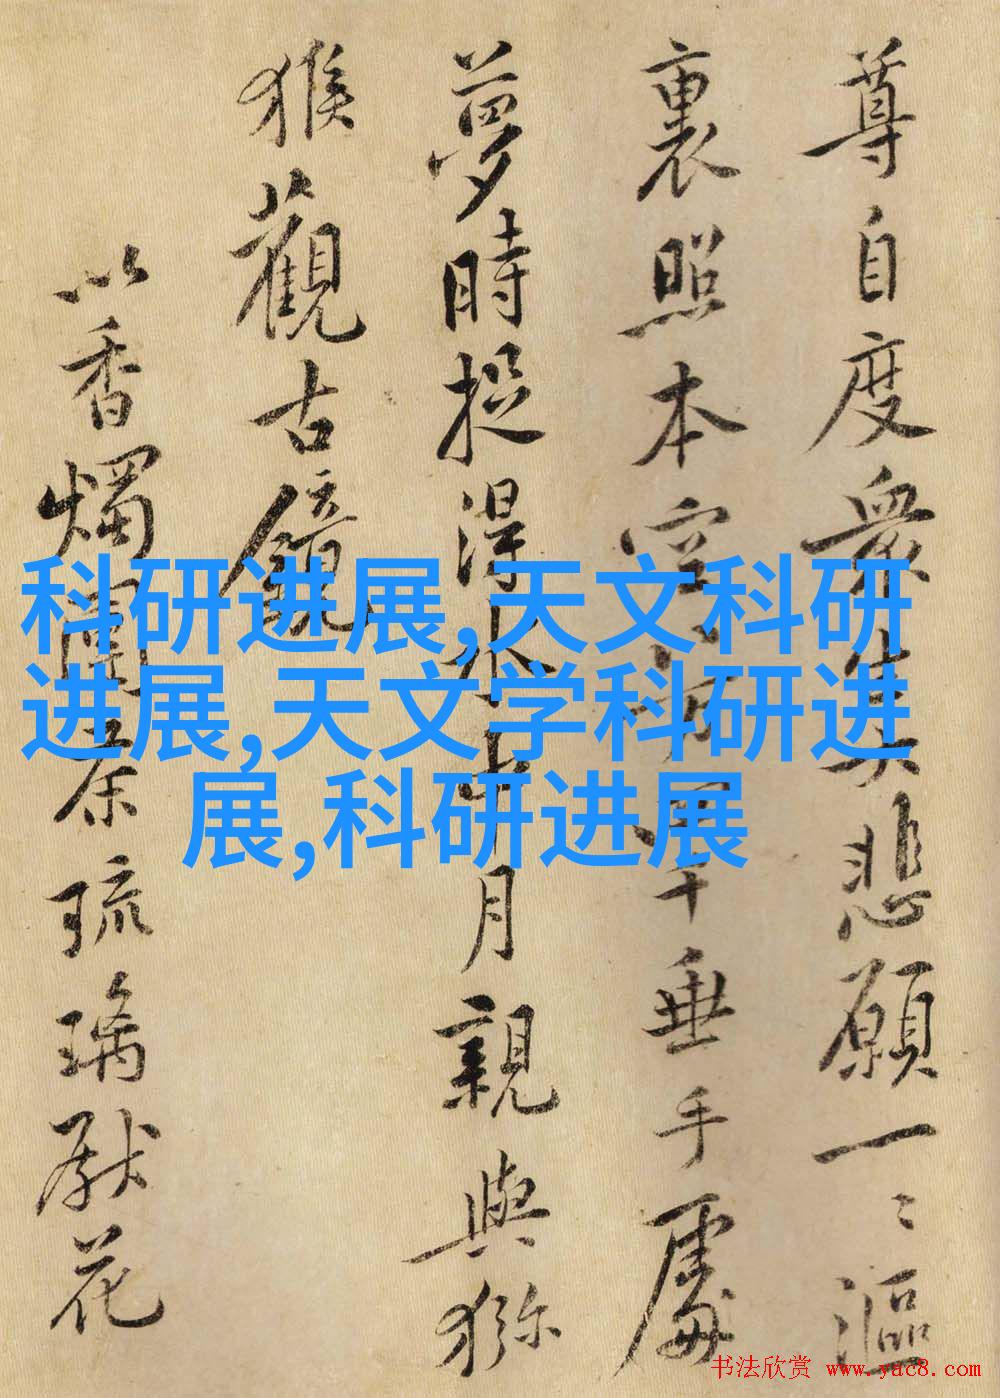 尊自度衆生悲願一〻漚
裏照本空千垂手處
夢時捉得水中月親與獼
猴觀古鏡
以香燭團茶琉璃獻花
科研进展,天文科研
进展,天文学科研进
展,科研进展
书法欣赏 www.yac8.com